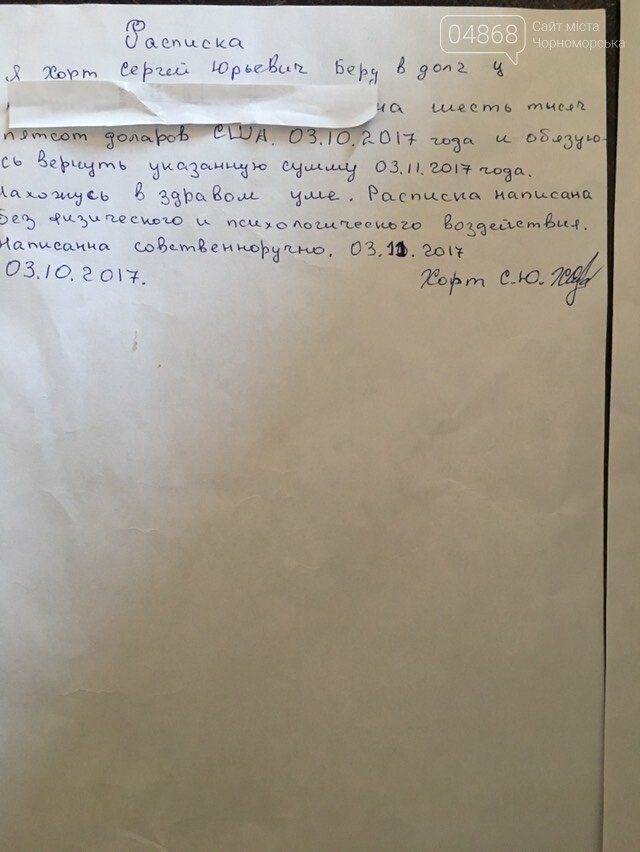 04868
Сайт міста
Чорноморська
Расписка
Я Хорт Сергей Юрьевич Беру в долг у
на шесть тысяч
пятсот доларов США. 03.10.2017 года и обязую-
сь вернуть указанную сумму 03.11.2017 года.
Нахожусь в здравом уме. Расписка написана
без физического и психологического воздействия.
Написанна совственноручно. 03.11.2017
03.10.2017.
Хорт С.Ю.